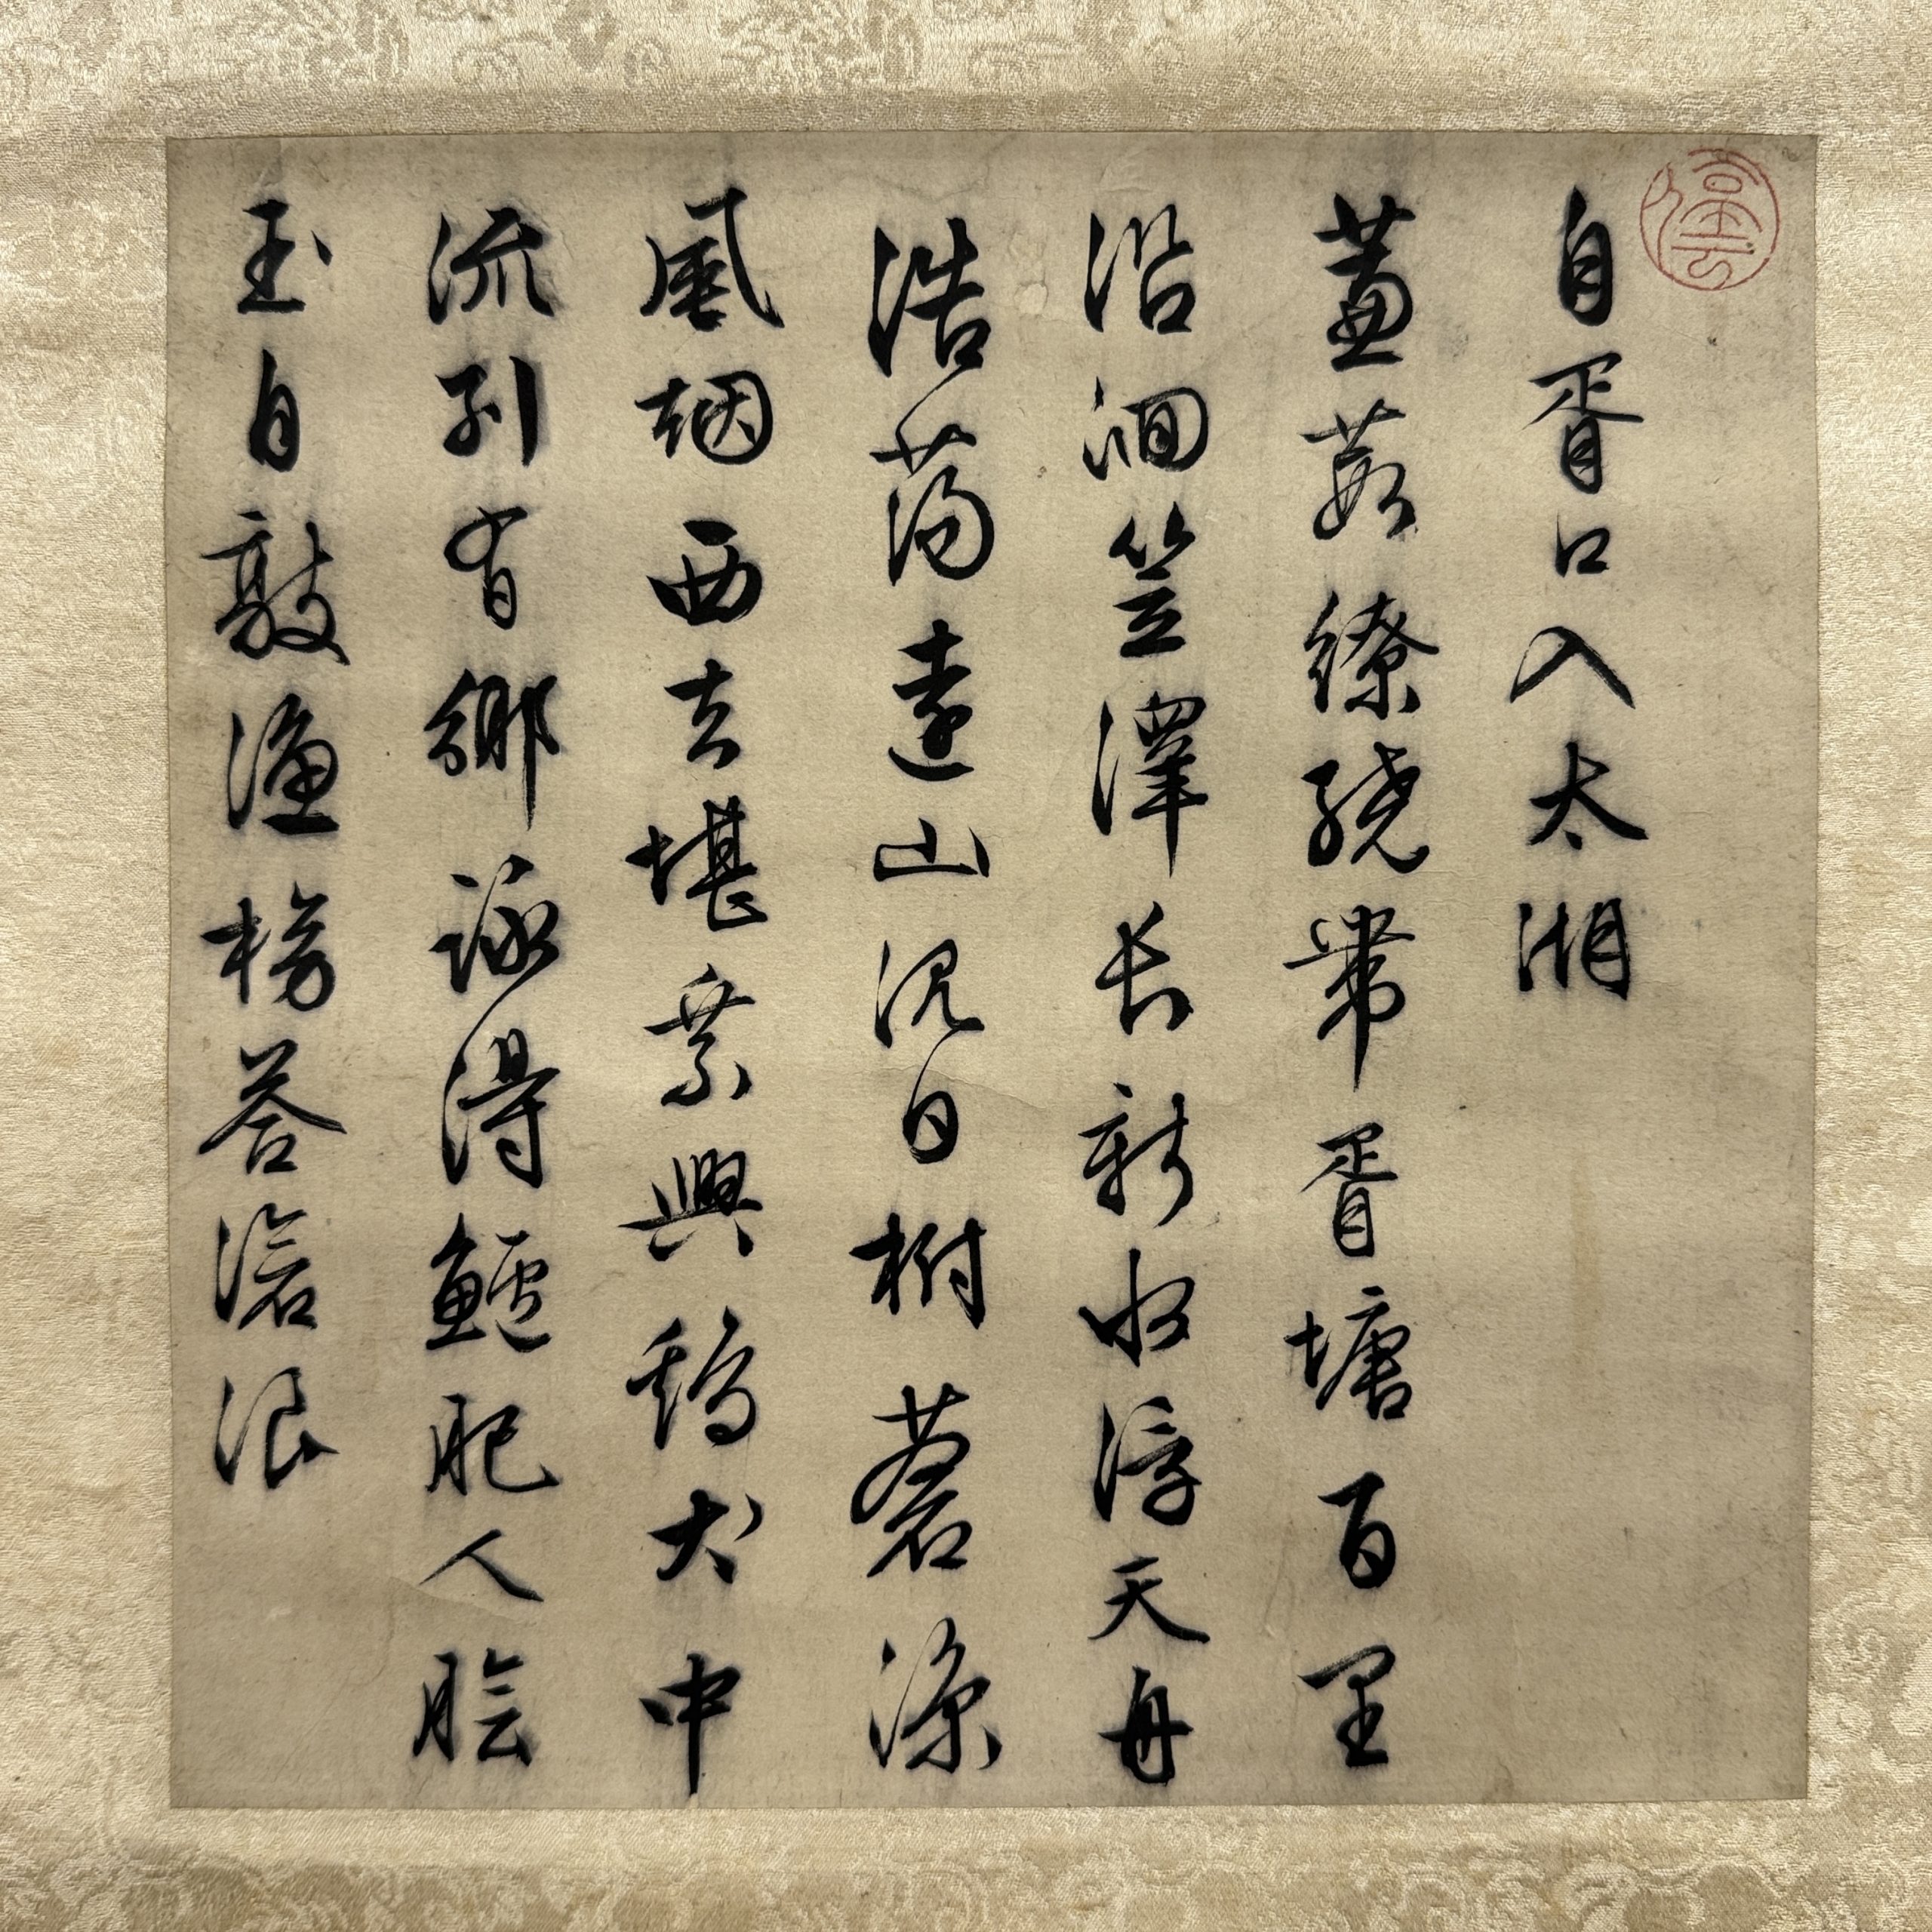 自胥口入太湖
葑葭繚繞帶胥塘百里
沿洄笠澤長新水浮天舟
浩蕩遠山沉日樹蒼涼
風烟西去堪乘興雞犬中
流別有鄉詠得鱸肥人膾
玉自敲漁榜答滄浪